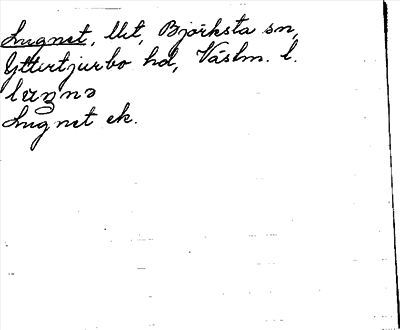 Lugnet, llt, Björksta sn,
Yttertjurbo hd, Västm. l.
Lugnet ek.